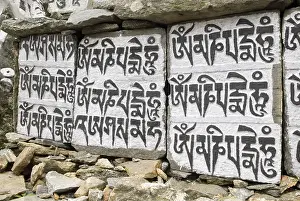 ཨོཾ་མ་ཎི་པདྨེ་ཧཱུྃ
ཨོཾ་མ་ཎི་པདྨེ་ཧཱུྃ
ཨོཾ་མ་ཎི་པདྨེ་ཧཱུྃ
ཨོཾ་མ་ཎི་པདྨེ་ཧཱུྃ
ཨོཾ་མ་ཎི་པདྨེ་ཧཱུྃ
ཨོཾ་མ་ཎི་པདྨེ་ཧཱུྃ
ཨོཾ་མ་ཎི་པདྨེ་ཧཱུྃ
ཨོཾ་མ་ཎི་པདྨེ་ཧཱུྃ